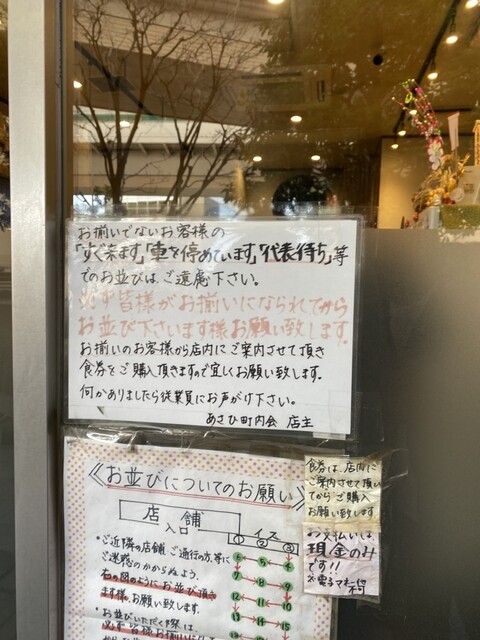 お揃いでないお客様の
「すぐ来ます」「車を停めています」「代表待ち」等
でのお並びは、ご遠慮下さい。
必ず皆様がお揃いになられてから
お並び下さいます様お願い致します。
お揃いのお客様から店内にご案内させて頂き
食券をご購入頂きますので宜しくお願い致します。
何かありましたら従業員にお声がけ下さい。
あさひ町内会 店主
《お並びについてのお願い》
店舗
入口
イス
① ② ③
・ご近隣の店舗、ご通行の方、等に
ご迷惑のかからぬよう、
右の図のようにお並び頂き
ます様、お願い致します。
・お並びいただく際は、
必ず皆様お揃いに
4 5 6
7 8 9
12 11 10
13 14 15
食券は、店内に
ご案内させて頂い
てからご購入
お願い致します
お支払いは、
現金のみ
です!!